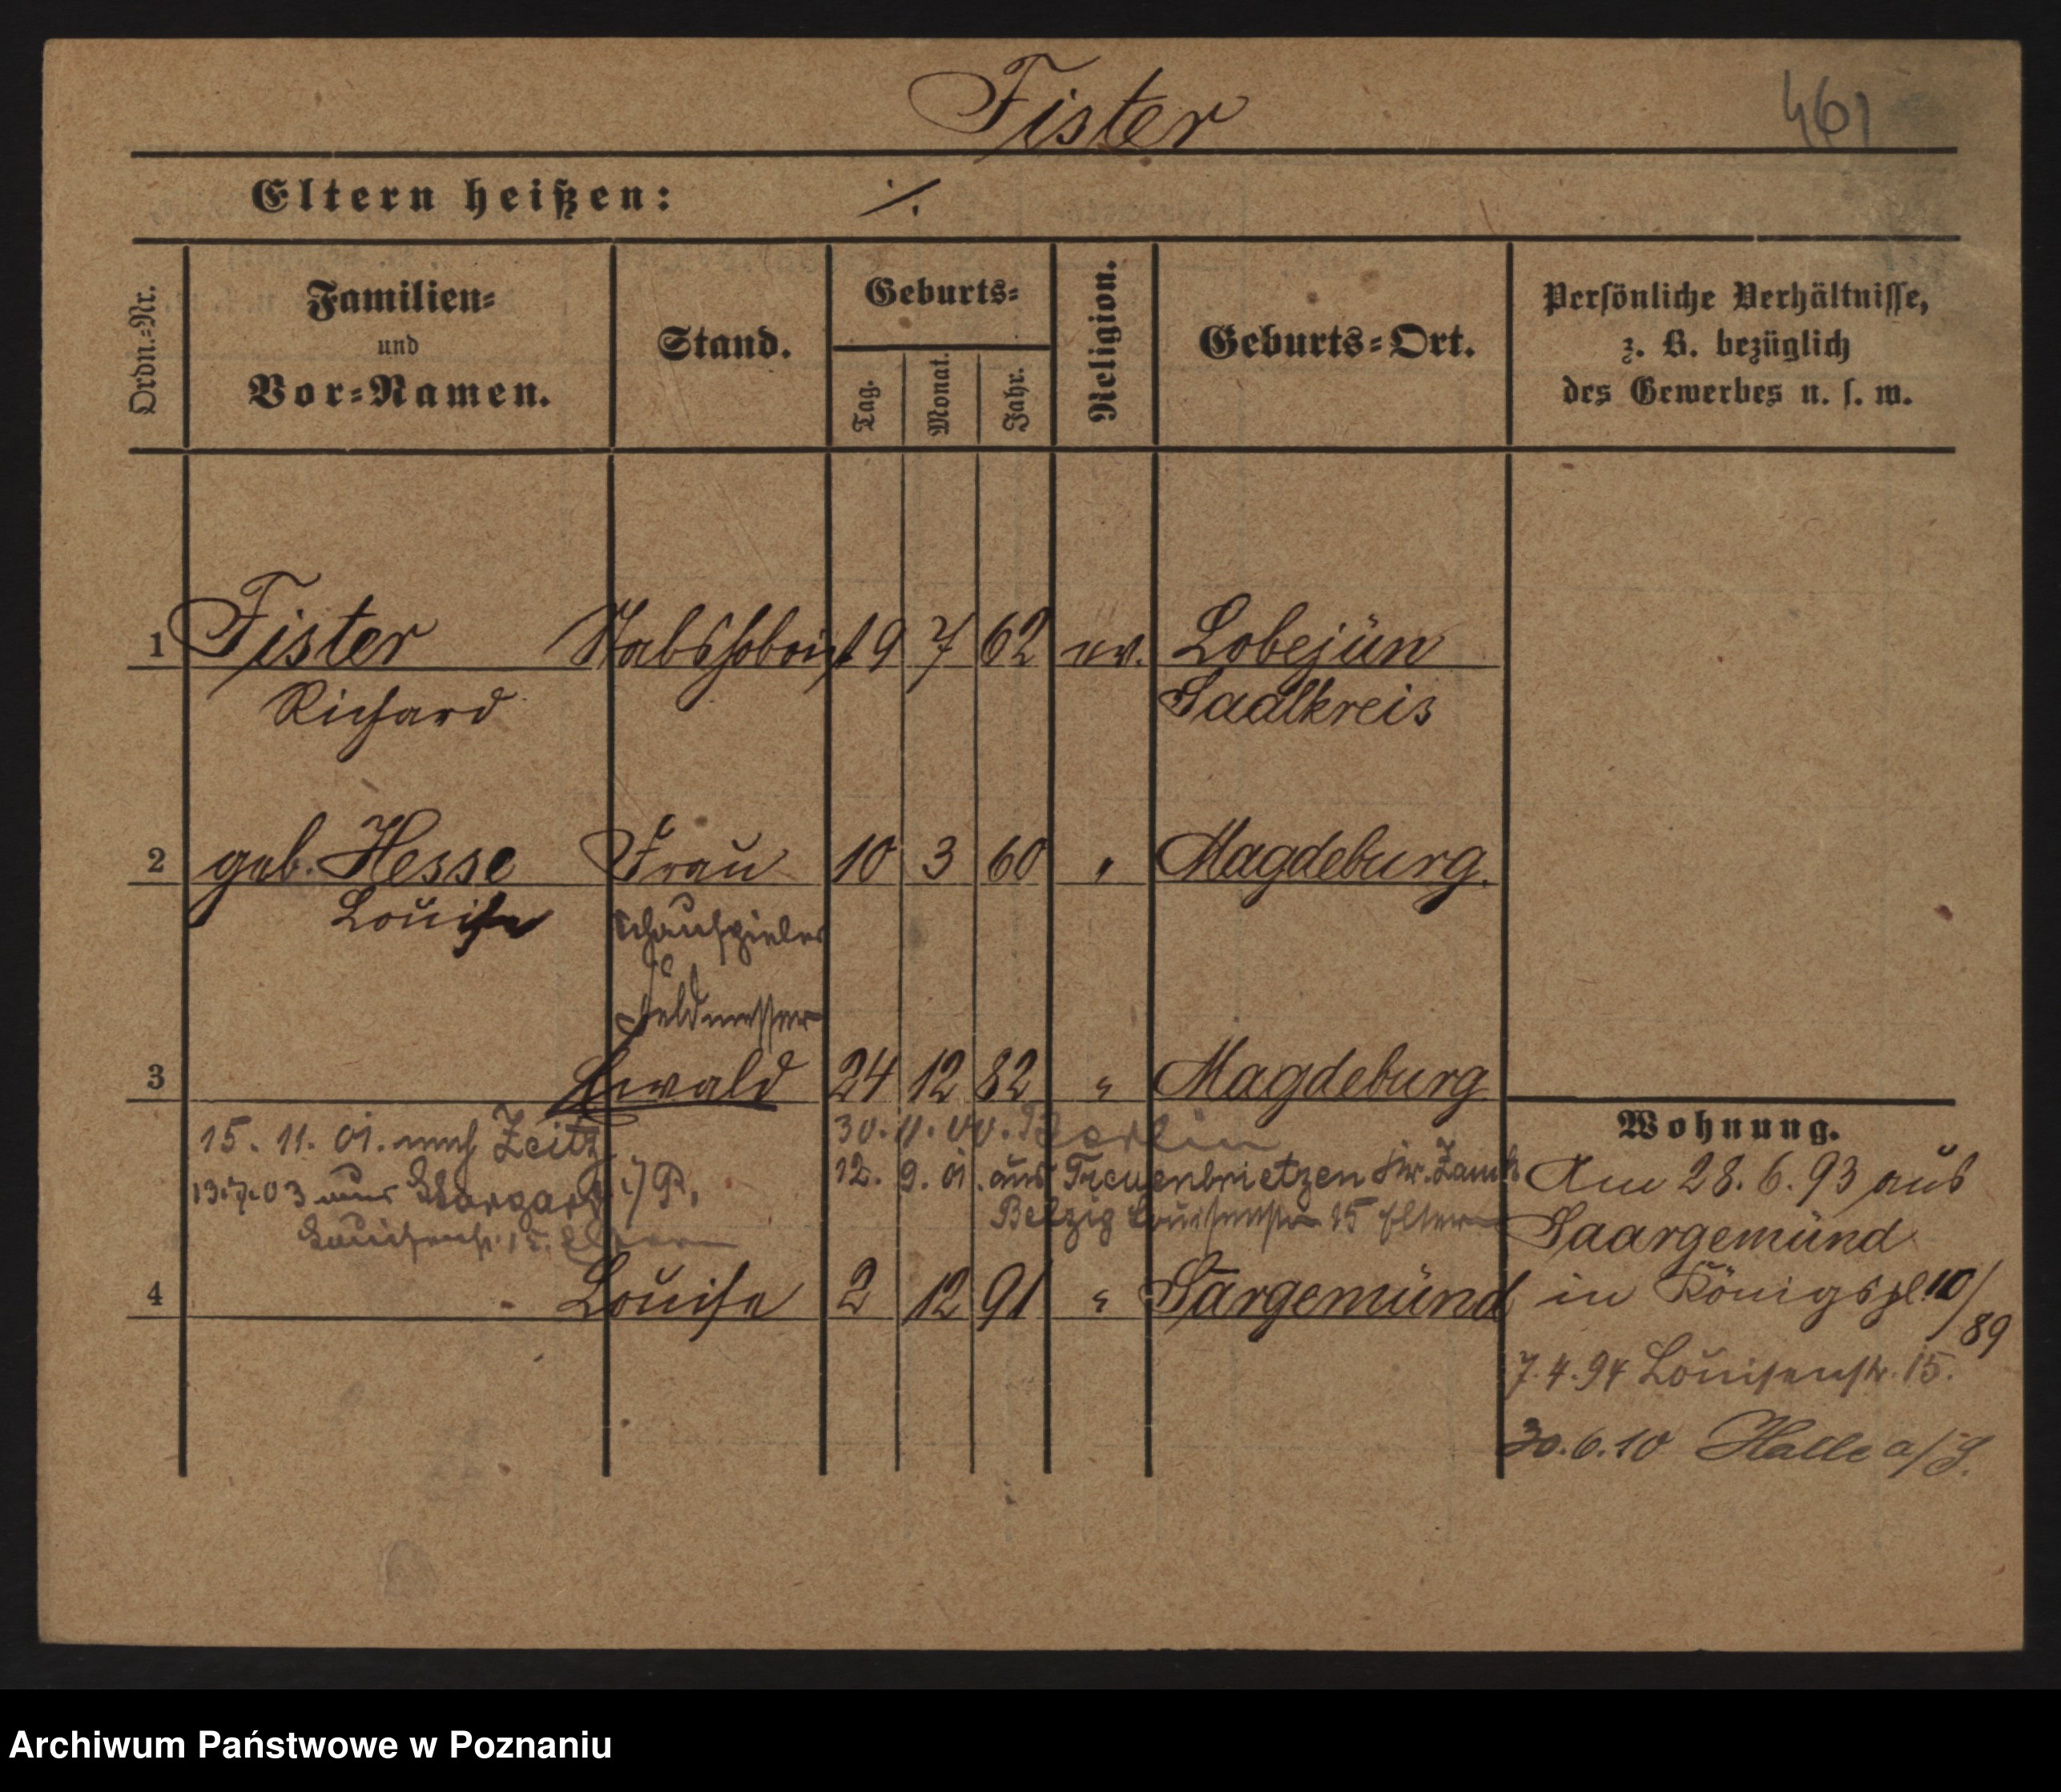 Fister
461
Eltern heißen: ⁒
Ordn.-Nr.
Familien-
und
Vor-Namen.
Stand.
Geburts-
Tag.
Monat.
Jahr.
Religion.
Geburts-Ort.
Persönliche Verhältnisse,
z. B. bezüglich
des Gewerbes u. s. w.
1 Fister Stabshoboist 19 7 62 ev. Lobejün
Richard Saalkreis
2 geb. Hesse Frau 10 3 60 " Magdeburg.
Louise Schauspieler
Feldmesser
3 Ewald 24 12 82 " Magdeburg
15. 11. 01. nach Zeitz 30. 11. 00. Berlin
13.7.03 aus Stargard i/P. 12. 9. 01. aus Treuenbrietzen Kr. Zauch
Belzig Louisenstr 15 Eltern
Louisenstr. 15. Eltern
4 Louise 2 12 91 " Sargemünd
Wohnung.
Am 28. 6. 93 aus
Saargemünd
in Königspl. 10/
89
7. 4. 94 Louisenstr. 15.
30. 6. 10 Halle a/S.
Archiwum Państwowe w Poznaniu